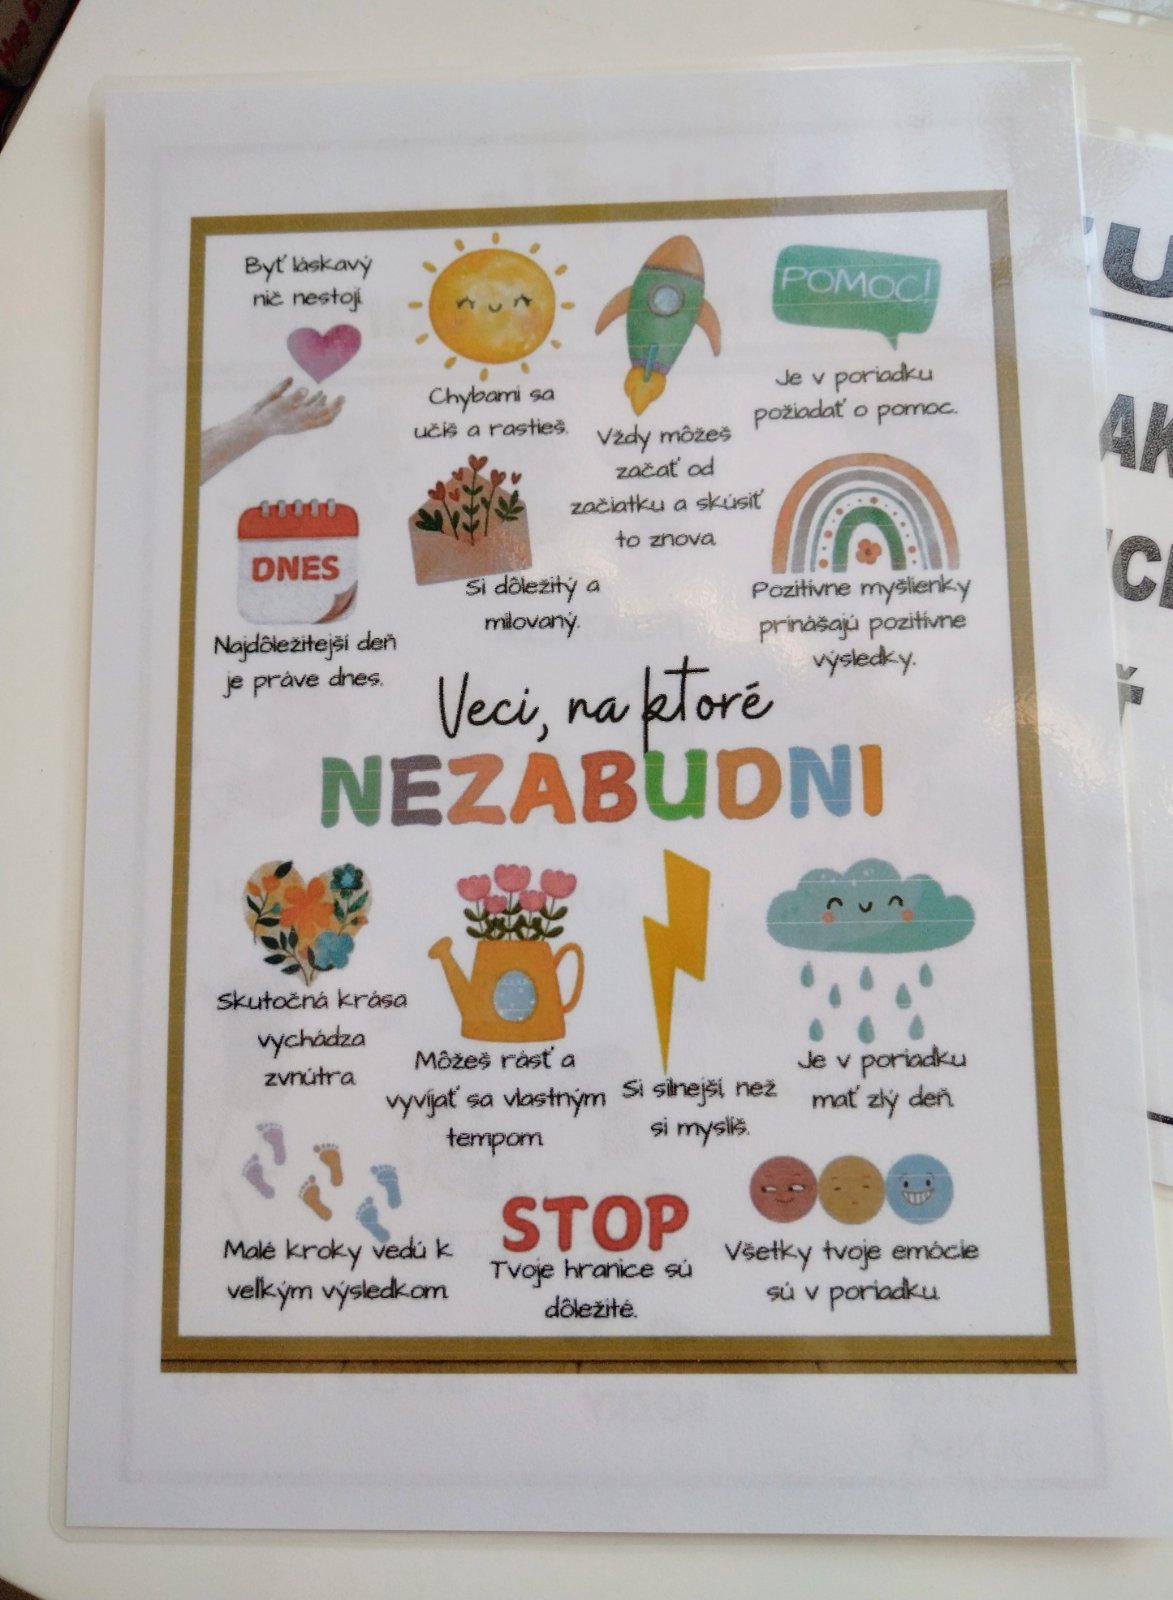 Byť láskavý
nič nestojí.
Chybami sa
učíš a rastieš.
Vždy môžeš
začať od
začiatku a skúsiť
to znova.
POMOC!
Je v poriadku
požiadať o pomoc.
DNES
Najdôležitejší deň
je práve dnes.
Si dôležitý a
milovaný.
Pozitívne myšlienky
prinášajú pozitívne
výsledky.
Veci, na ktoré
NEZABUDNI
Skutočná krása
vychádza
zvnútra
Môžeš rásť a
vyvíjať sa vlastným
tempom
Si silnejší, než
si myslíš.
Je v poriadku
mať zlý deň.
Malé kroky vedú k
veľkým výsledkom
STOP
Tvoje hranice sú
dôležité.
Všetky tvoje emócie
sú v poriadku